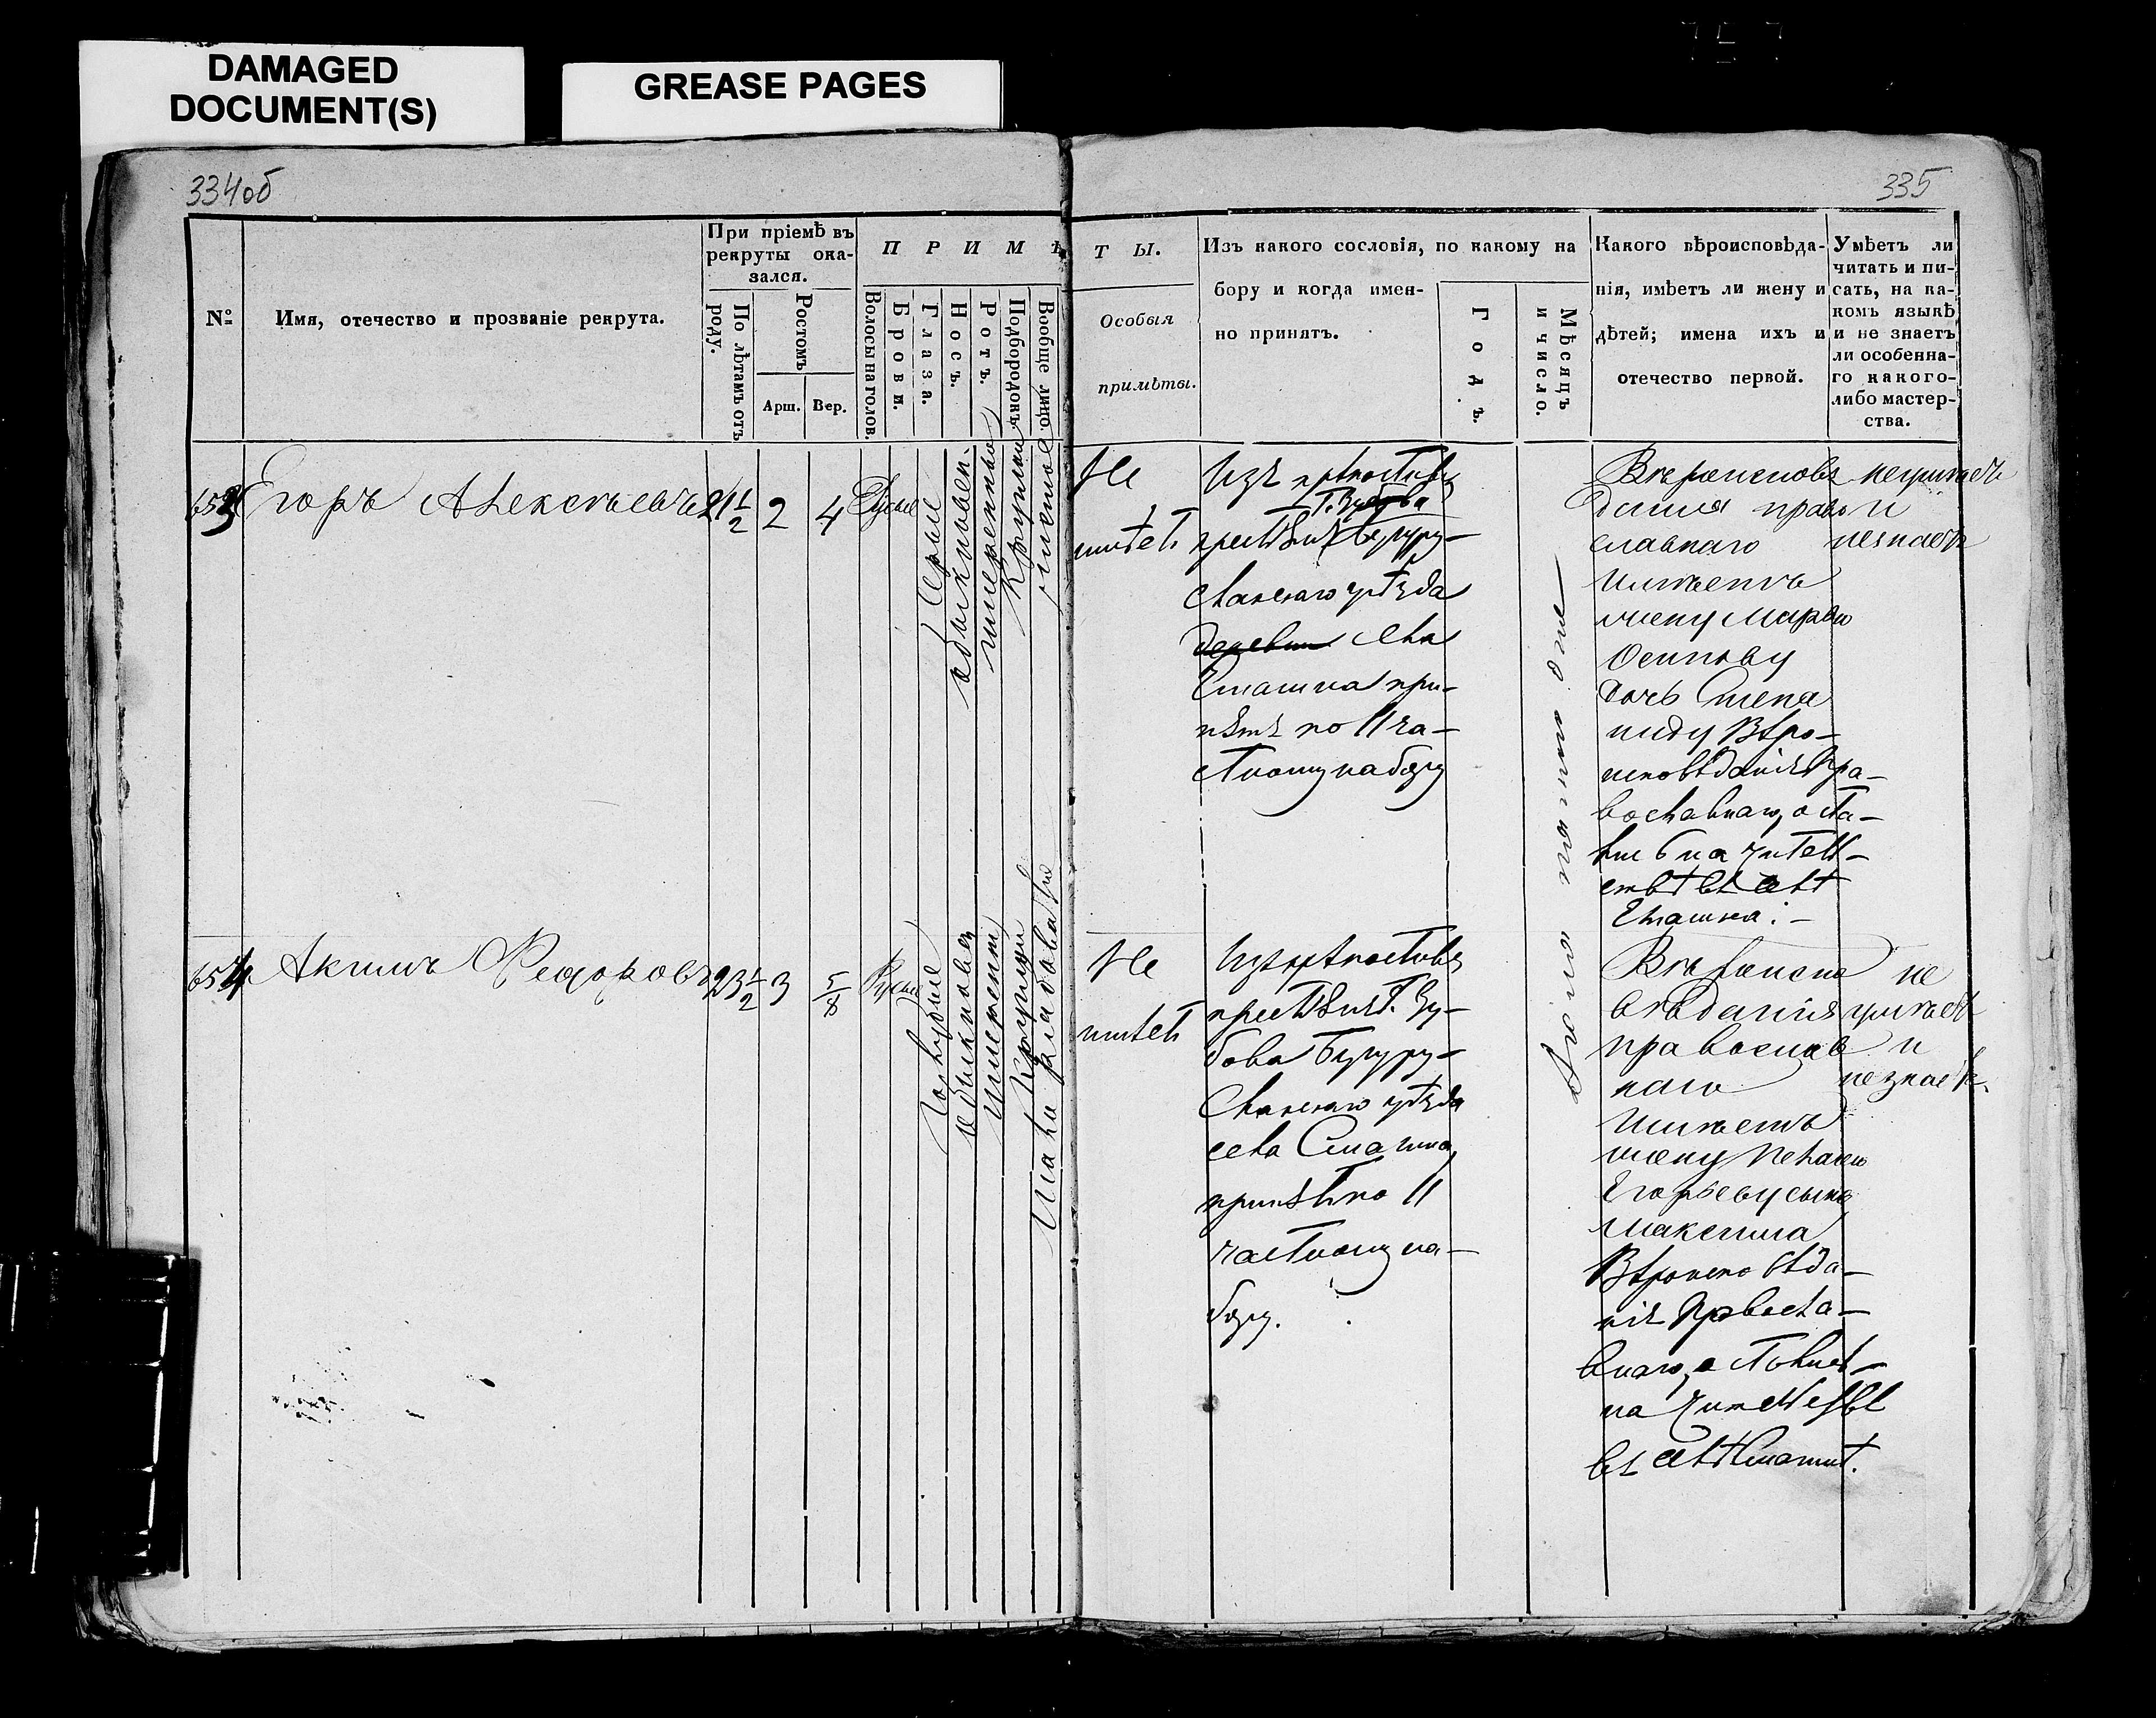 DAMAGED
DOCUMENT(S)
GREASE PAGES
334об
335
№
Имя, отечество и прозваніе рекрута.
При пріемѣ въ
рекруты ока-
зался.
По лѣтамъ отъ
роду.
Ростомъ
Арш.
Вер.
ПРИМѢ
Волосы на голов.
Брови.
Глаза.
Носъ.
Ротъ.
Подбородокъ.
Вообще лицо.
ТЫ.
Особыя
примѣты.
Изъ какого сословія, по какому на
бору и когда имен-
но принятъ.
Годъ.
Мѣсяцъ
и число.
Какого вѣроисповѣда-
нія, имѣетъ ли жену и
дѣтей; имена ихъ и
отечество первой.
Умѣетъ ли
читать и пи-
сать, на ка-
комъ языкѣ
и не знаетъ
ли особенна-
го какого-
либо мастер-
ства.
653
Егоръ Алексѣевъ
21 1/2
2
4
Русые
Серые
обыкновен.
умеренной
Круглой
чистое
Не
имѣетъ
Изъ крѣпостныхъ
Г. Зубова
крестьянъ Бугуру-
сланскаго уѣзда
деревни села
принятъ по 11 ча-
стному набору
Вѣроисповѣ
данія право
славнаго
имѣетъ
жену Марью
Осипову
дочь Степа
ниду Вѣро-
исповѣданія Пра-
вославнаго, оста-
на жител-
ствѣ въ селѣ
и
незнаетъ
654
Акимъ Федоровъ
23 1/2
3
5/8
Русые
Голубые
обыкновен
умерен
Круглый
рябоватые
Не
имѣетъ
Изъ крѣпостныхъ
крестьянъ Г. Зу-
бова Бугуру-
сланскаго уѣзда
села
принятъ по 11
частному на-
бору.
Вѣроиспо
вѣданія
православ
наго
имѣетъ
жену Пелагею
Егорьеву сына
Максима
Вѣроисповѣда-
нія Правосла-
внаго,
на
въ селѣ
не
и
незнаетъ.